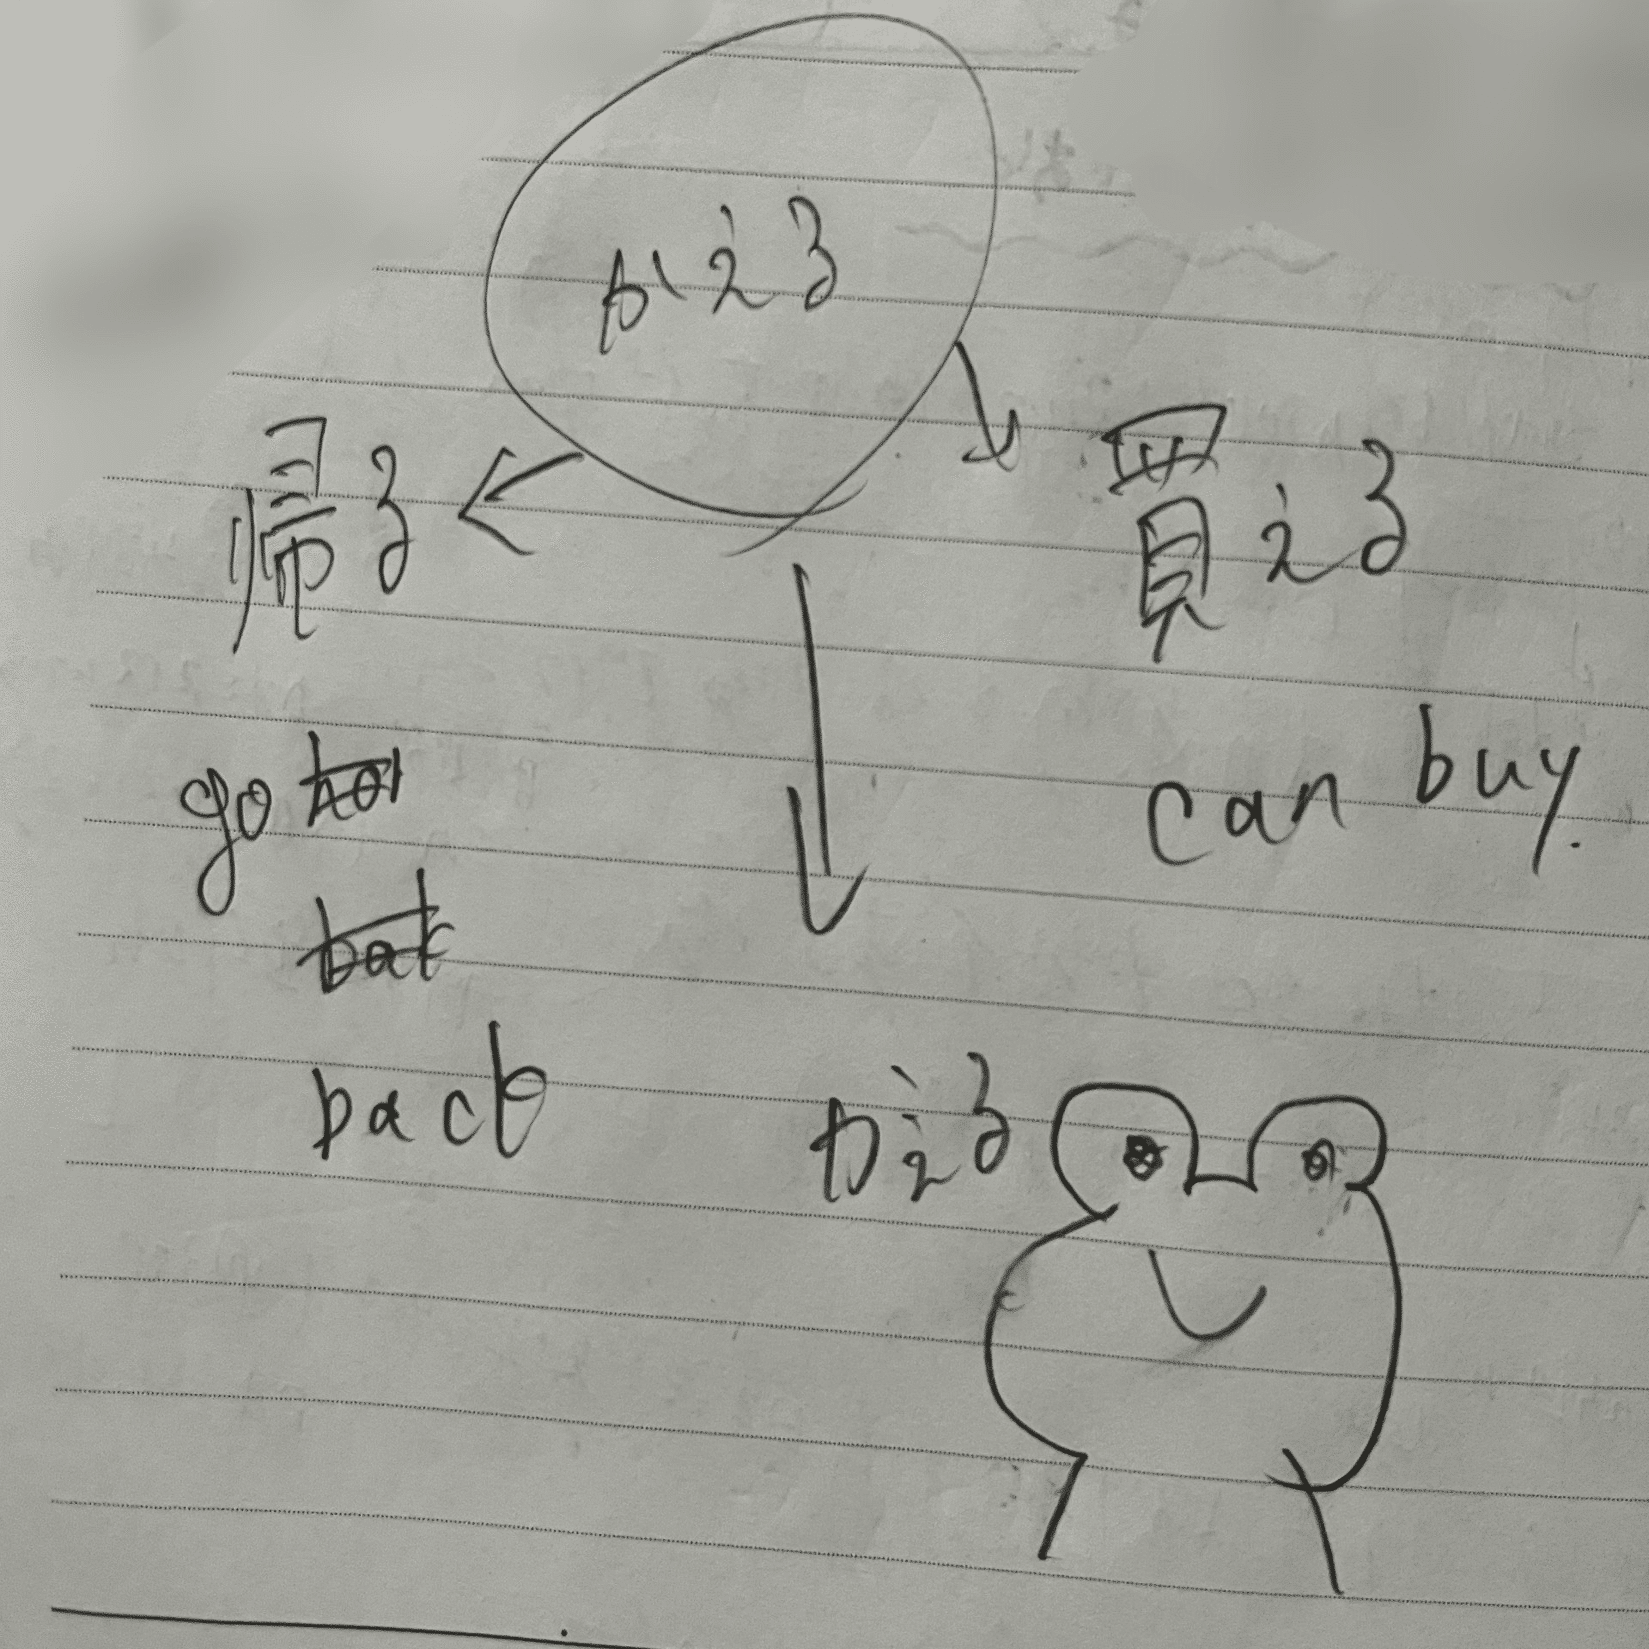 かえる
帰る
買える
go
can buy.
back
かえる